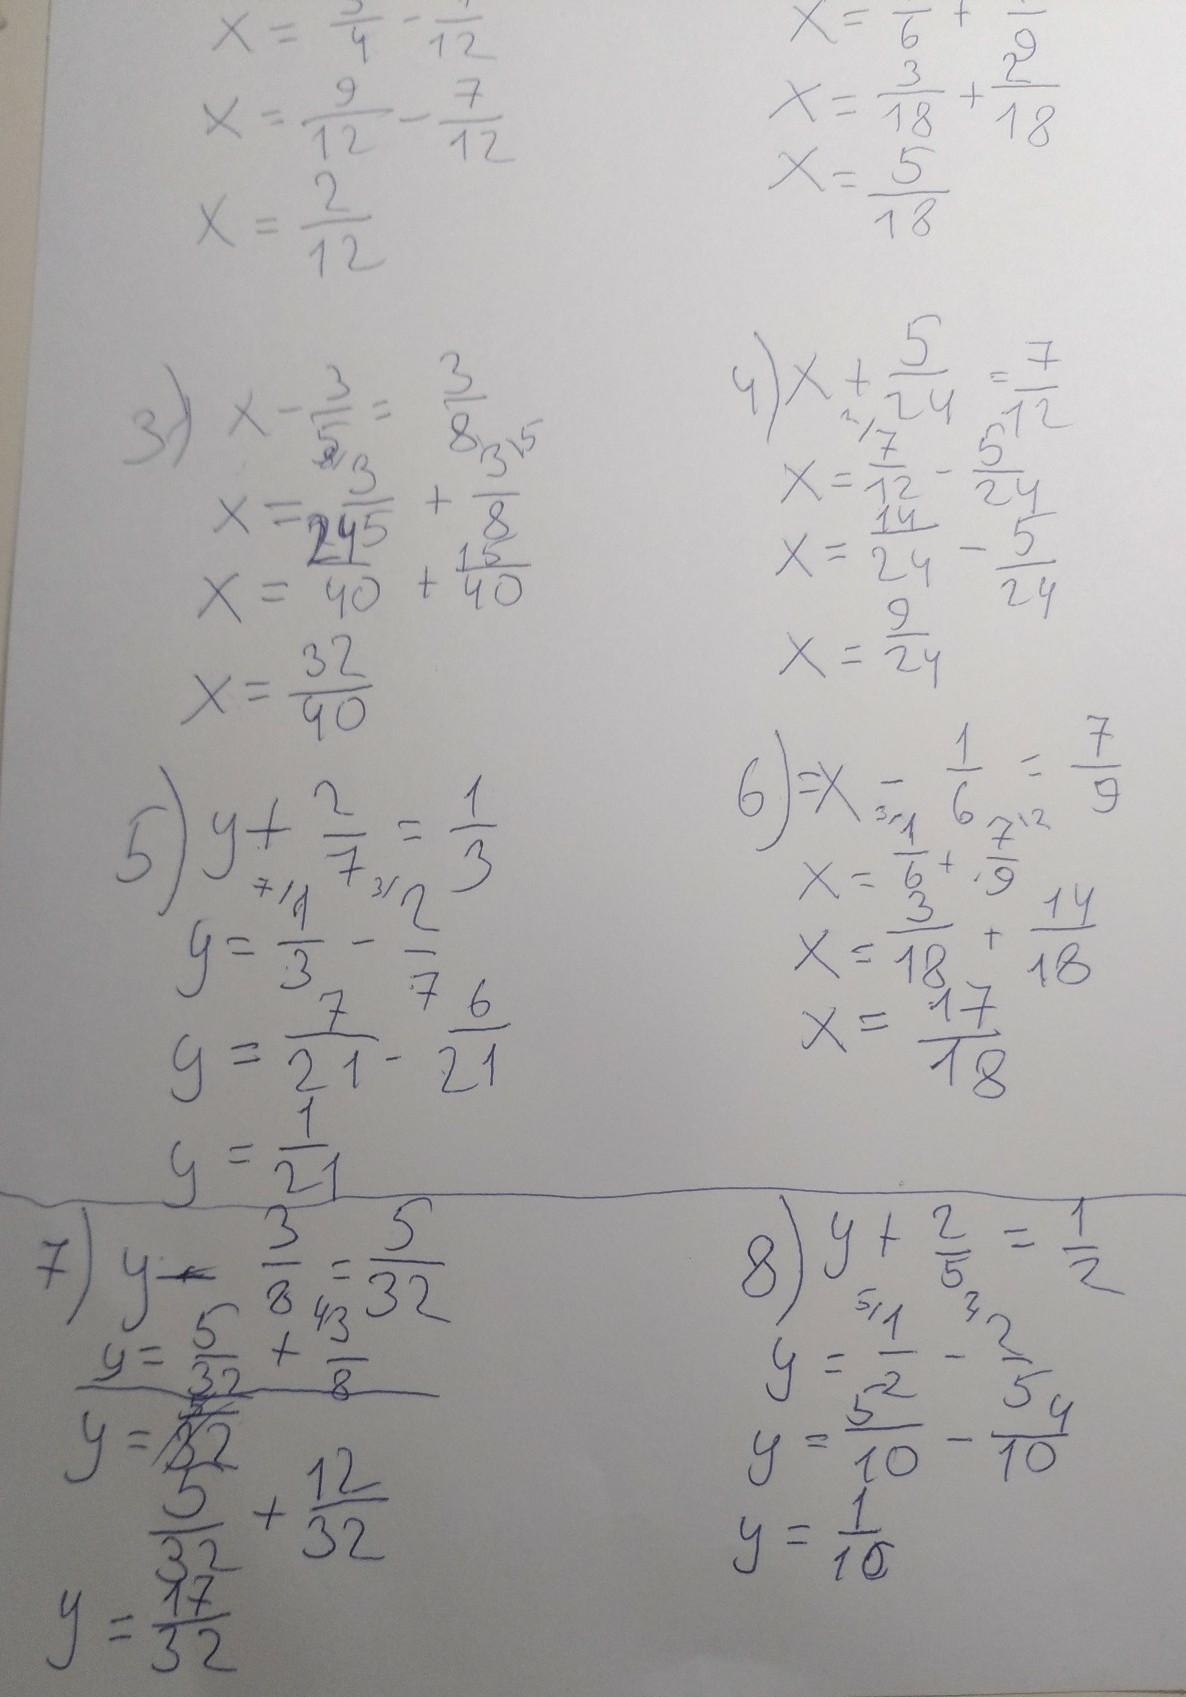 x = 3/4 - 7/12
x = 9/12 - 7/12
x = 2/12
x = 1/6 + 1/9
x = 3/18 + 2/18
x = 5/18
3) x - 3/5 = 3/8
x = 3/5 + 3/8
x = 24/40 + 15/40
x = 32/40
4) x + 5/24 = 7/12
x = 7/12 - 5/24
x = 14/24 - 5/24
x = 9/24
5) y + 2/7 = 1/3
y = 1/3 - 2/7
y = 7/21 - 6/21
y = 1/21
6) = x - 1/6 = 7/9
x = 1/6 + 7/9
x = 3/18 + 14/18
x = 17/18
7) y - 3/8 = 5/32
y = 5/32 + 3/8
y =
5/32 + 12/32
y = 17/32
8) y + 2/5 = 1/2
y = 1/2 - 2/5
y = 5/10 - 4/10
y = 1/10